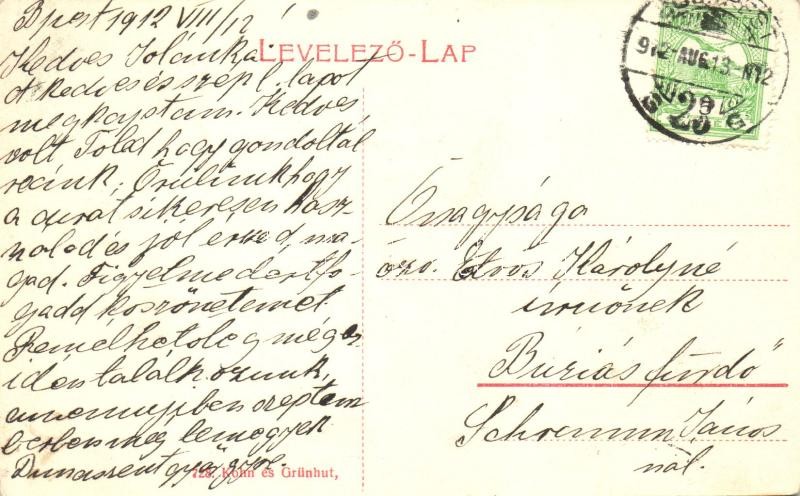 Bpest 1912 VIII/12
LEVELEZŐ-LAP
Kedves Jolánka!
A kedves és szép l. lapot
megkaptam. Kedves
volt Tőled hogy gondoltál
reánk, Örülünk hogy
a kurát sikeresen hasz-
nalod és jól érzed ma-
gad. Figyelmedért fo-
gadd köszönetemet
Remélhetoleg még ez
idén találkozunk,
amennyiben szeptem
berben még lemegyek
Dunaszentgyörgyre.
912 AUG. 13. N12
Őnagysága
özv. Etvos Károlyné
úrnőnek
Buziás fürdő
Schremm János
nál.
728. Kohn és Grünhut,